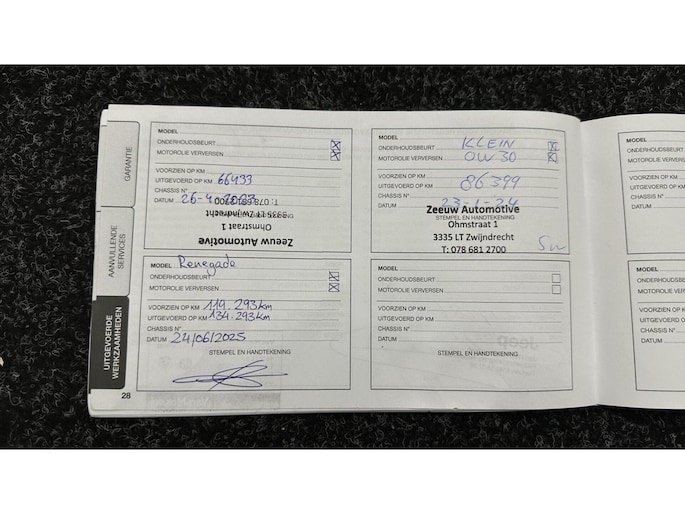 GARANTIE
AANVULLENDE
SERVICES
UITGEVOERDE
WERKZAAMHEDEN
MODEL
ONDERHOUDSBEURT
MOTOROLIE VERVERSEN
VOORZIEN OP KM
UITGEVOERD OP KM 66433
CHASSIS N°
DATUM 26-4-2023
STEMPEL EN HANDTEKENING
Zeeuw Automotive
Ohmstraat 1
3335 LT Zwijndrecht
T: 078 6812700
MODEL
ONDERHOUDSBEURT KLEIN
MOTOROLIE VERVERSEN 0W30
VOORZIEN OP KM
UITGEVOERD OP KM 86399
CHASSIS N°
DATUM 23-1-24
Zeeuw Automotive
Ohmstraat 1
3335 LT Zwijndrecht
T: 078 681 2700
MODEL Renegade
ONDERHOUDSBEURT
MOTOROLIE VERVERSEN
VOORZIEN OP KM 119.293km
UITGEVOERD OP KM 134.293km
CHASSIS N°
DATUM 24/06/2025
STEMPEL EN HANDTEKENING
MODEL
ONDERHOUDSBEURT
MOTOROLIE VERVERSEN
VOORZIEN OP KM
UITGEVOERD OP KM
CHASSIS N°
DATUM
STEMPEL EN HANDTEKENING
28
MODEL
ONDERHO
MOTOROL
VOORZIEN
UITGEVOE
CHASSIS N
DATUM
MODEL
ONDERHO
MOTORO
VOORZIE
UITGEVO
CHASSIS
DATUM